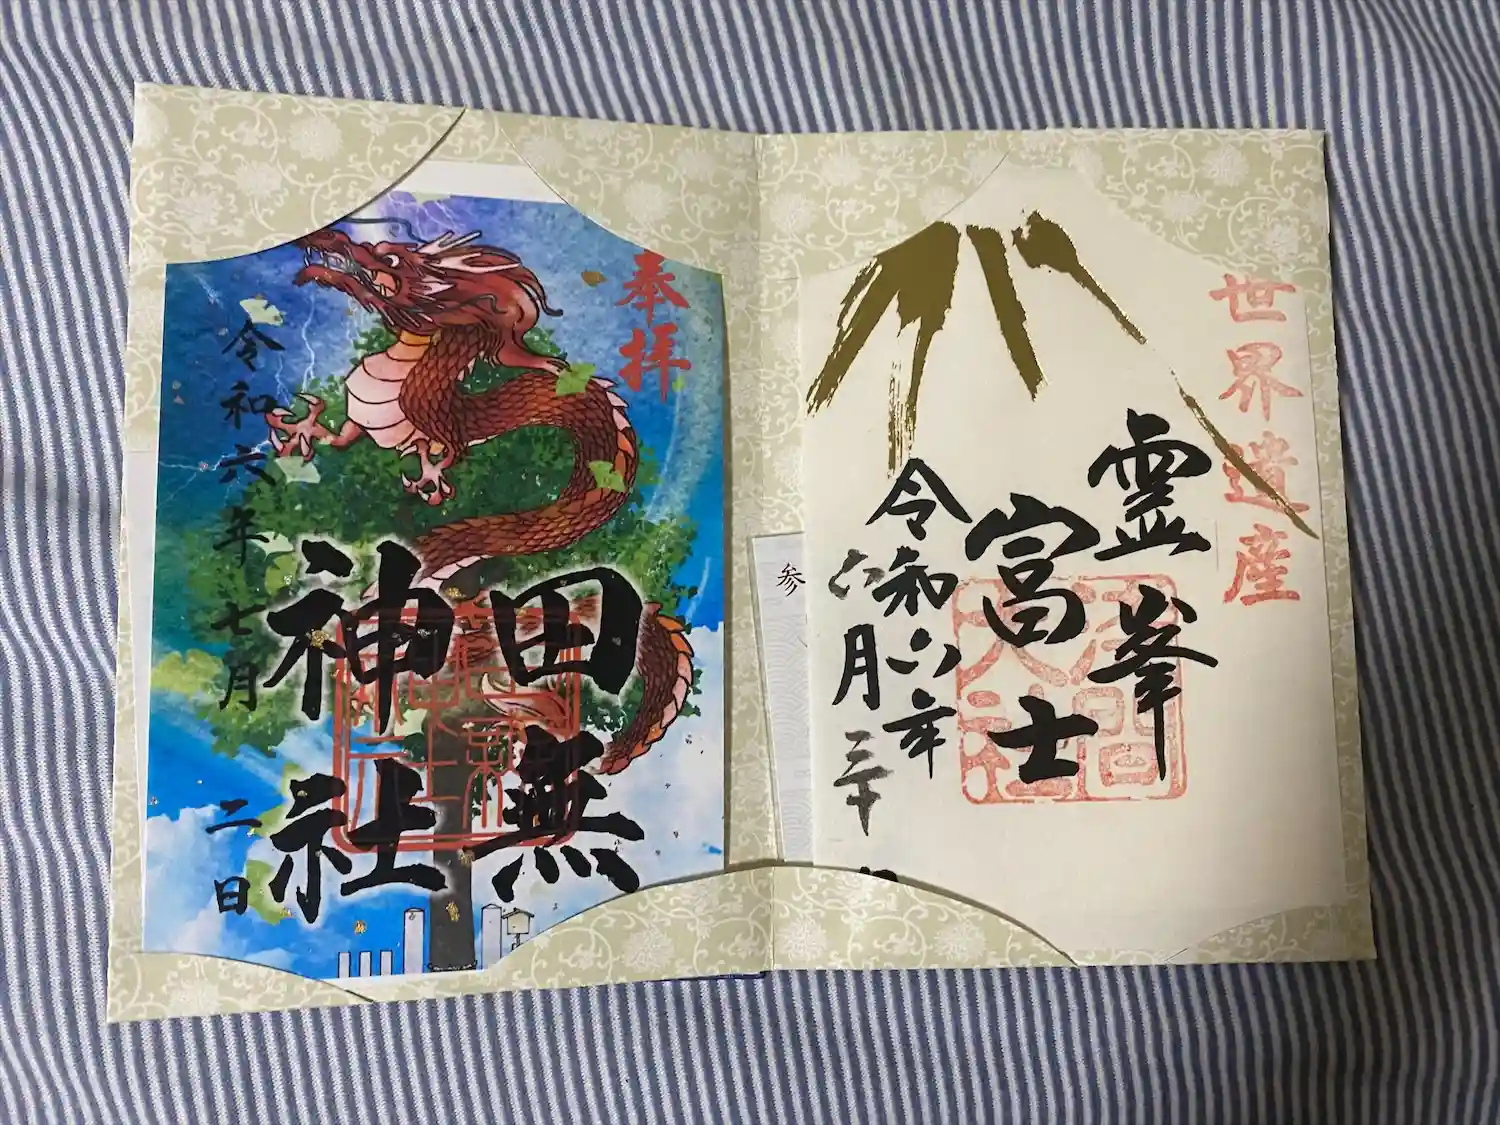 世界遺産
霊峯
富士
浅間
大社
令和六年
六月三十
参
奉拝
田無
神社
令和六年七月二日